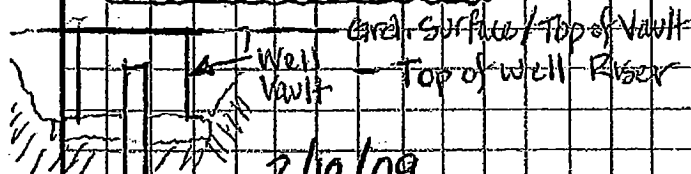 Grd. Surface / Top of Vault
Well
Vault
- Top of Well Riser
2/10/09